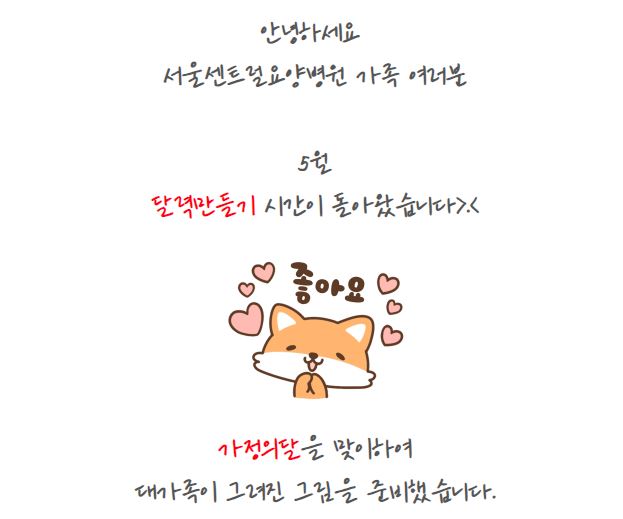 안녕하세요
서울센트럴요양병원 가족 여러분
5월
달력만들기 시간이 돌아왔습니다>.<
좋아요
가정의달을 맞이하여
대가족이 그려진 그림을 준비했습니다.